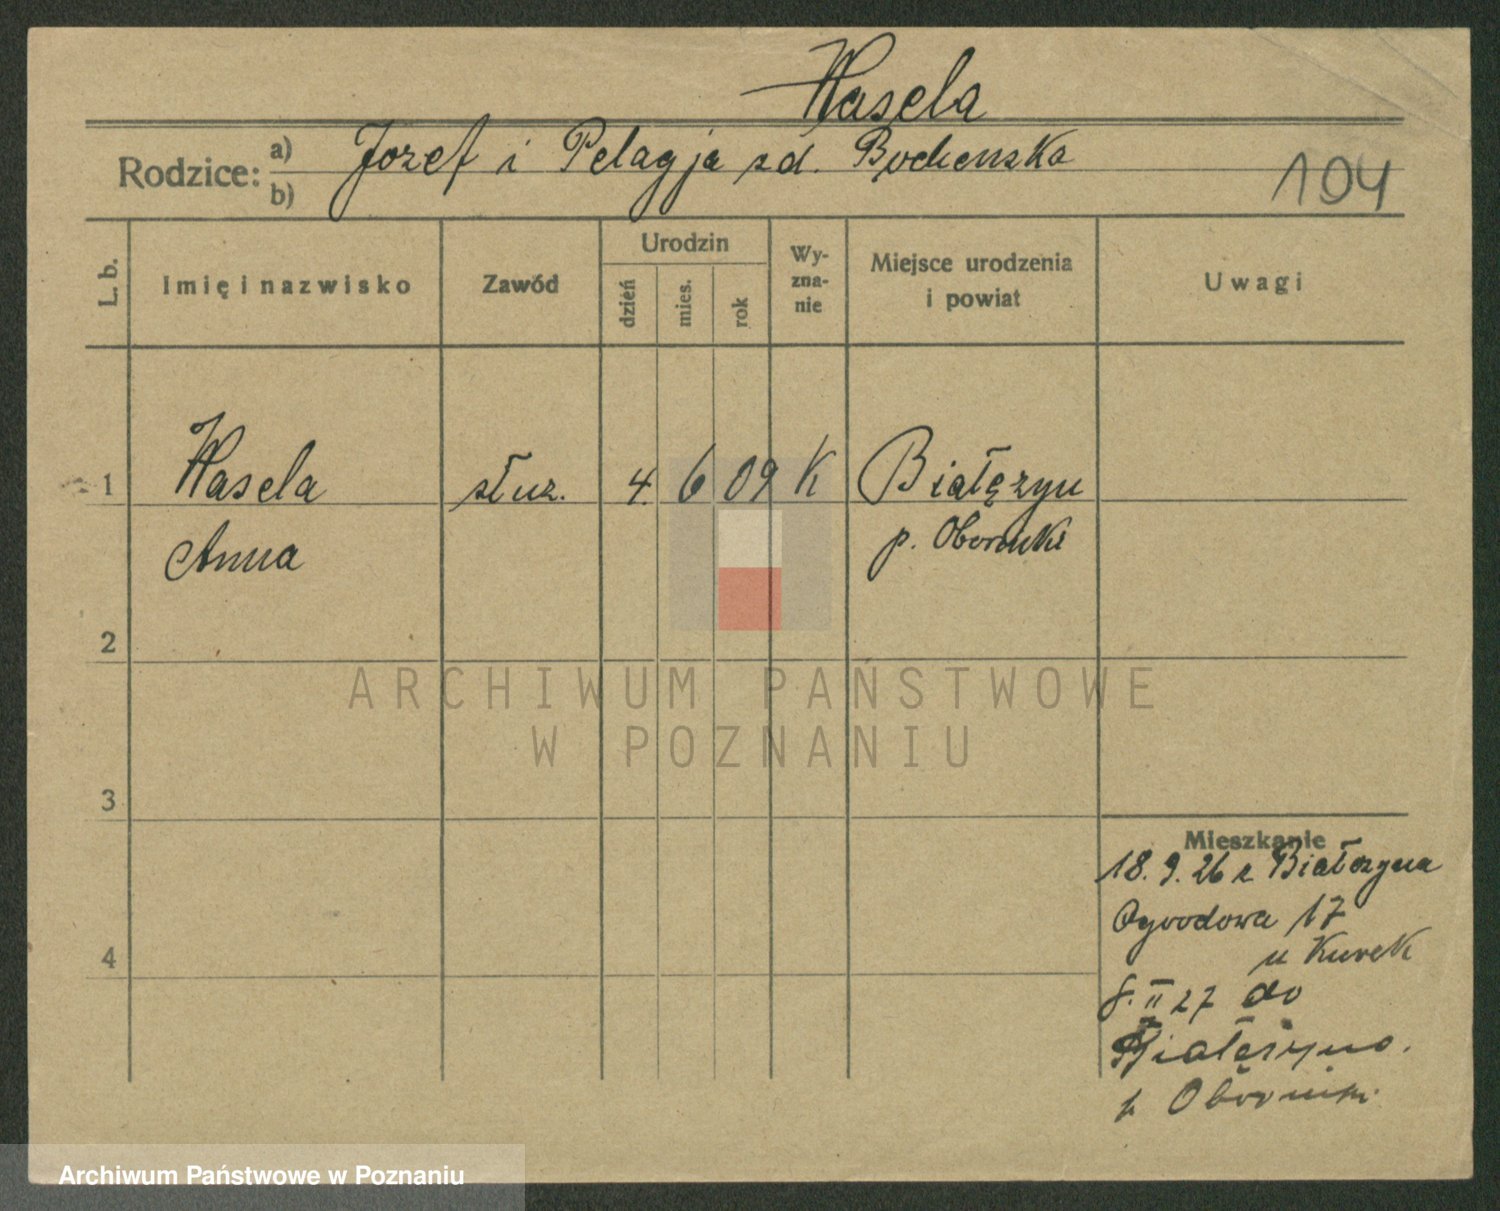 Wasela
Rodzice: a) Józef i Pelagja zd. Bochenska
b)
104
L. b. Imię i nazwisko Zawód Urodzin dzień mies. rok Wyznanie Miejsce urodzenia i powiat Uwagi
1 Wasela służ. 4. 6 09 K Białężyn
Anna p. Oborniki
2
3
4
Mieszkanie
18. 9. 26 z Białężyna
Ogrodowa 17
u Kurek
8. II 27 do
Białężyna.
p. Oborniki
ARCHIWUM PAŃSTWOWE
W POZNANIU
Archiwum Państwowe w Poznaniu